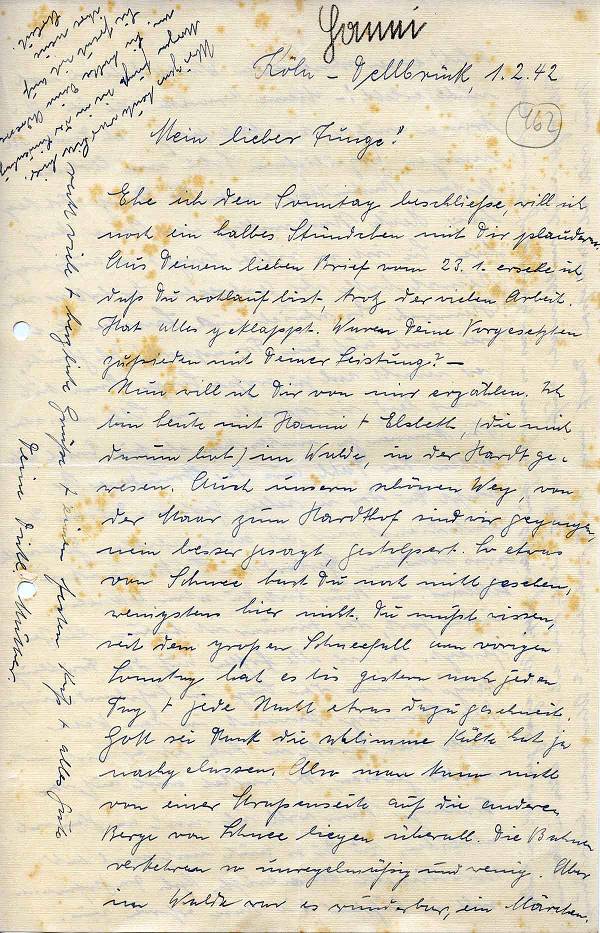 Hanni
Köln-Dellbrück, 1.2.42
962
Mein lieber Junge!
Ehe ich den Sonntag beschließe, will ich
noch ein halbes Stündchen mit Dir plaudern.
Aus Deinem lieben Brief vom 23.1. ersehe ich,
daß Du wohlauf bist, trotz der vielen Arbeit.
Hat alles geklappt. Waren Deine Vorgesetzten
zufrieden mit Deiner Leistung? —
Nun will ich Dir von mir erzählen. Ich
bin heute mit Hanni + Elsbeth, (die mich
darum bat) im Walde, in der Hardt ge-
wesen. Auch unsern schönen Weg, von
der Maar zum Hardthof sind wir gegangen,
nein besser gesagt, gestolpert. So etwas
von Schnee hast Du noch nicht gesehen,
wenigstens hier nicht. Du mußt wissen,
seit dem großen Schneefall am vorigen
Sonntag hat es bis gestern noch jeden
Tag + jede Nacht etwas dazugeschneit.
Gott sei Dank die schlimme Kälte hat ja
nachgelassen. Also man kann nicht
von einer Straßenseite auf die andere
Berge von Schnee liegen überall. Die Bahnen
verkehren so unregelmäßig und wenig. Aber
im Walde war es wunderbar, ein Märchen.
recht viele + herzliche Grüße + einen festen Kuß + alles Gute
Deine Mutter